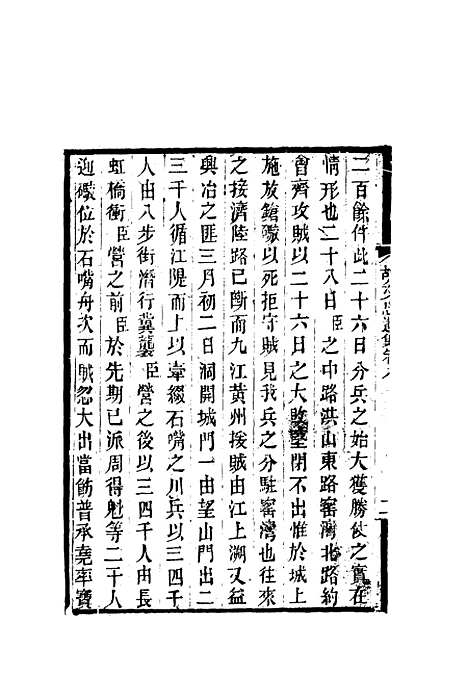 二百餘件此二十六日分兵之始大獲勝仗之實在
情形也二十八日臣之中路洪山東路窰灣北路約
會齊攻賊以二十六日之大敗堅閉不出惟於城上
施放鎗礮以死拒守賊見我兵之分駐窰灣也往來
之接濟陸路已斷而九江黃州援賊由江上溯又益
興冶之匪三月初二日洞開城門一由望山門出二
三千人循江隄而上以牽綴石嘴之川兵以三四千
人由八步街潛行冀襲臣營之後以三四千人由長
虹橋衝臣營之前臣於先期已派周得魁等二十人
迎礮位於石嘴舟次而賊忽大出當飭普承堯率寶